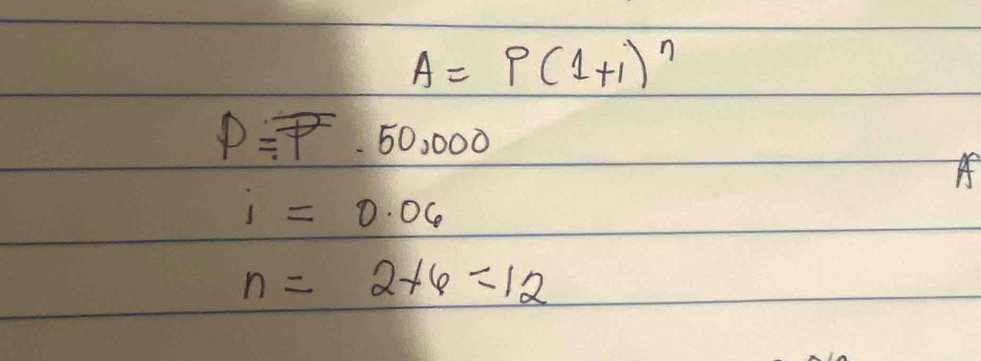 A = P(1+i)^n
P = P . 50,000
A
i = 0.06
n = 2×6 = 12